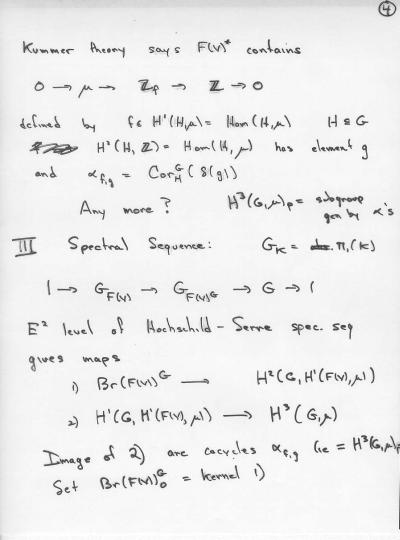 4
Kummer theory says F(V)* contains
0 → μ → ℤρ → ℤ → 0
defined by f ∈ H'(H,μ) = Hom(H,μ) H ⊆ G
H²(H, ℤ) = Hom(H, μ) has element g
and α_{f,g} = Cor_H^G (δ(g))
Any more? H³(G,μ)_p = subgroup
gen by α's
III Spectral Sequence: G_K = π₁(K)
1 → G_{F(V)} → G_{F(V)^G} → G → 1
E² level of Hochschild-Serre spec. seq
gives maps
1) Br(F(V))^G → H²(G, H'(F(V), μ))
2) H'(G, H'(F(V), μ)) → H³(G, μ)
Image of 2) are cocycles α_{f,g} (ie = H³(G,μ)_p
Set Br(F(V))_0^G = kernel 1)